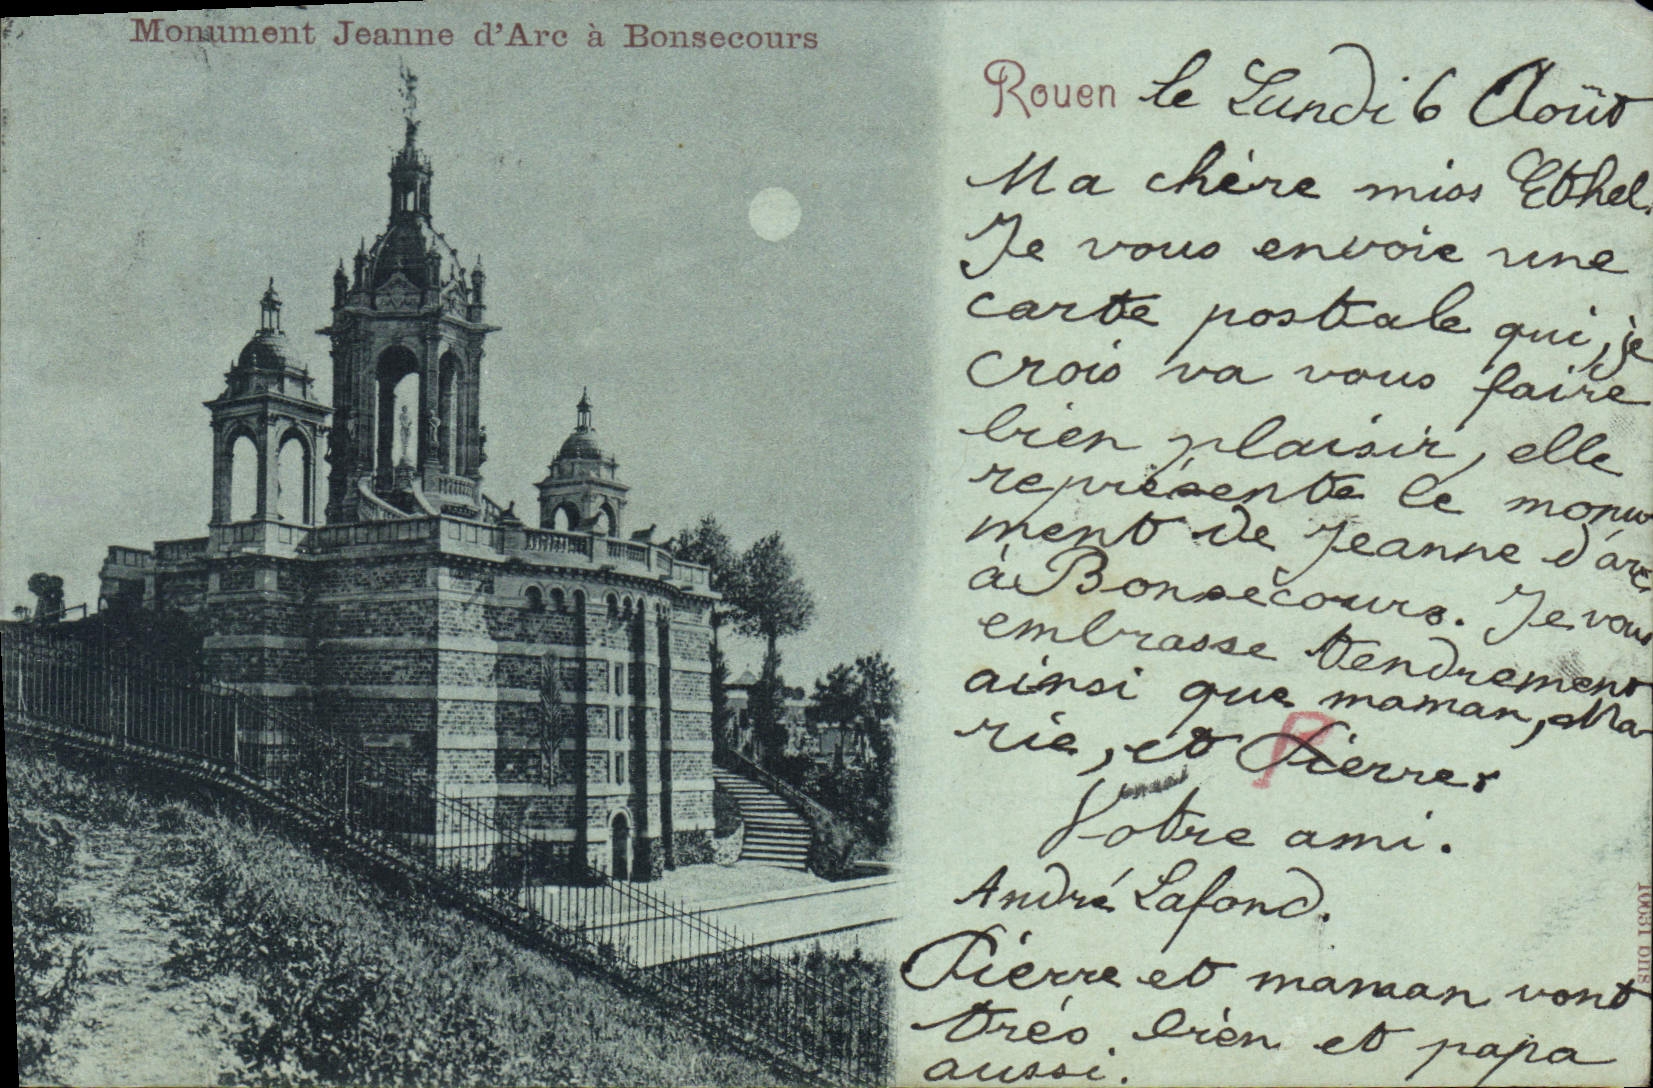 Monument Jeanne d'Arc à Bonsecours
Rouen le Lundi 6 Août
Ma chère miss Ethel.
Je vous envoie une
carte postale qui, je
crois va vous faire
bien plaisir, elle
représente le monu
ment de Jeanne d'arc
à Bonsecours. Je vous
embrasse tendrement
ainsi que maman, Ma-
rie, et Pierre.
Votre ami.
André Lafond.
Pierre et maman vont
très bien et papa
aussi.